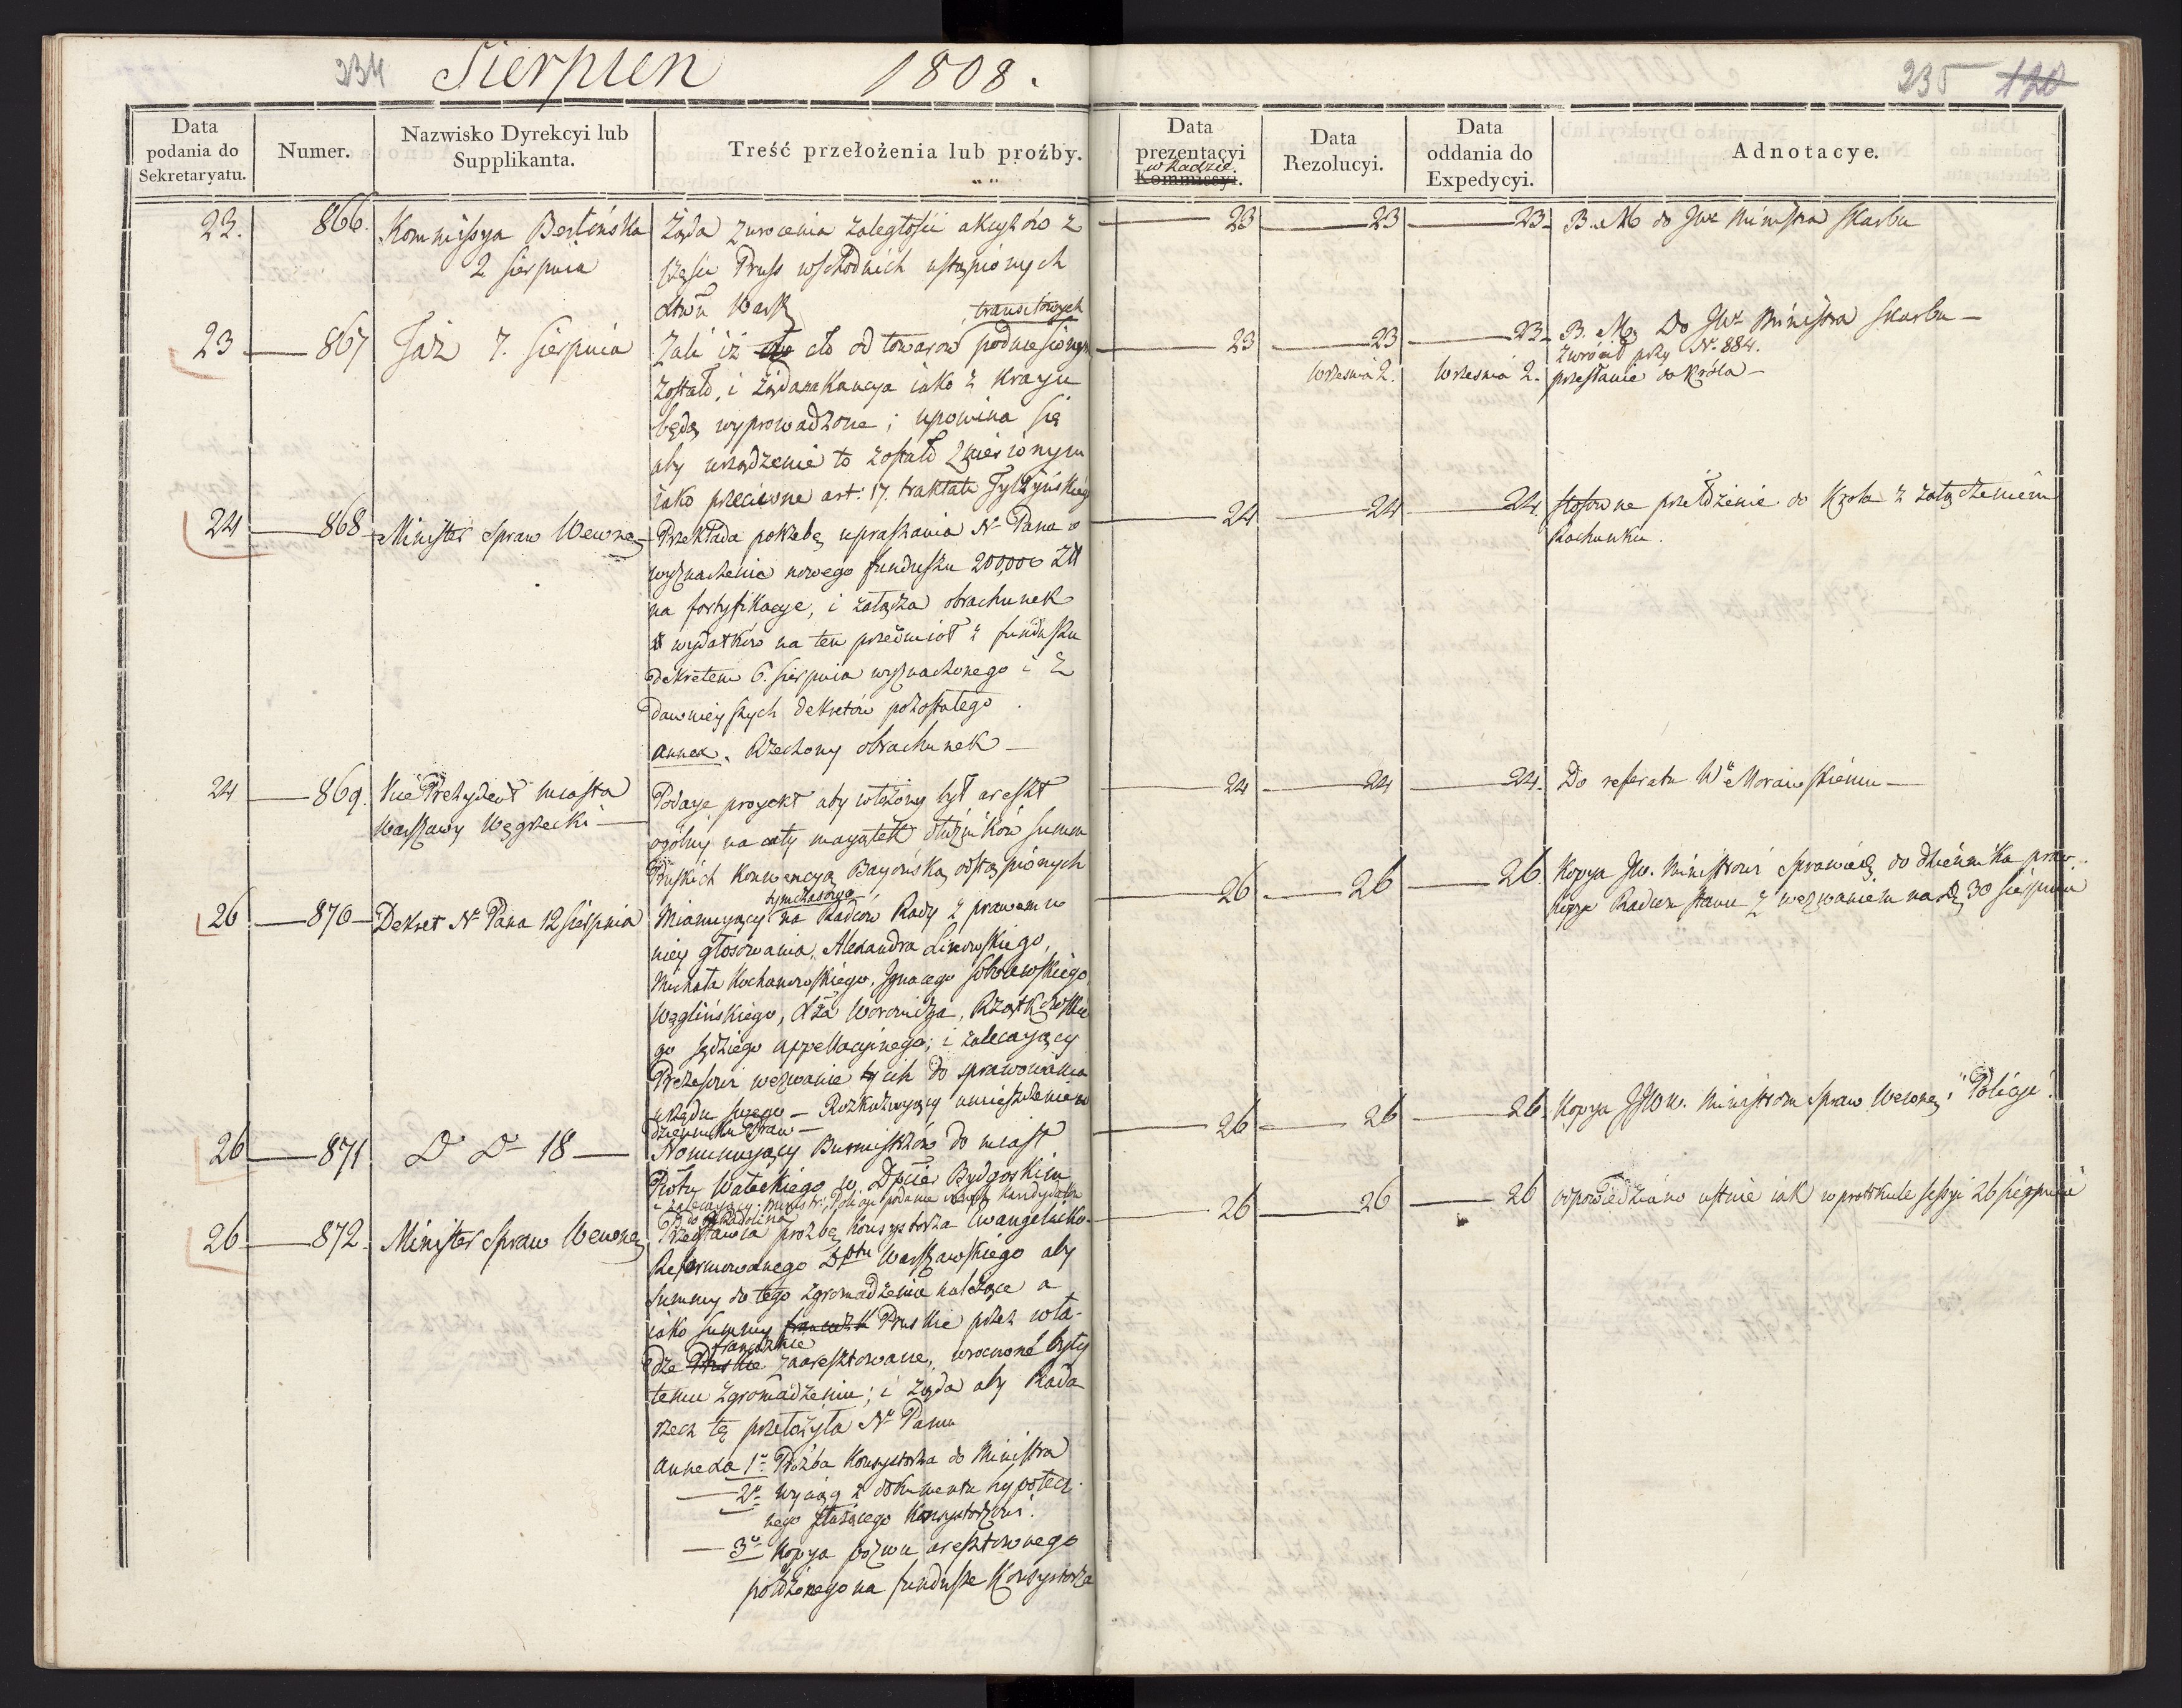 234 Sierpien 1808.
235 120
Data podania do Sekretaryatu.
Numer.
Nazwisko Dyrekcyi lub Supplikanta.
Treść przełożenia lub proźby.
Data prezentacyi w Radzie Kommissyi.
Data Rezolucyi.
Data oddania do Expedycyi.
Adnotacye.
23. 866. Kommissya Berlińska
2 sierpnia
Żąda zwrocenia zaległości akcyzów z
części Pruss wschodnich ustąpionych
Xtwu Warsz
23 23 23 B. M. do JWo Ministra Skarbu
23 867 Taż 7. Sierpnia
tranzitowych
Żali iż cło od towarów podniesionym
zostało, i żądana kaucya iako z kraju
będą wyprowadzone; upomina się
aby urządzenie to zostało zniesionym
iako przeciwne art: 17. traktatu Tylżyńskieg
23 23 23 B. M. Do JWo Ministra Skarbu
zwrócił przy No 884.
Września 2. Września 2. przesłanie do Króla
24 868 Minister Spraw Wewnę
Przekłada potrzebę upraszania N. Pana o
wyznaczenie nowego funduszu 200,000 Zł
na fortyfikacye, i załącza obrachunek
wydatków na ten przedmiot z funduszu
dekretem 6. sierpnia wyznaczonego i z
dawnieyszych dekretów pozostałego.
annex. Rzeczony obrachunek
24 24 24. stosowne przełożenie do Króla z załączeniem
Rachunku.
24 869. Vice Prezydent miasta
Warszawy Węgrzecki
Podaje projekt aby włożony był areszt
ogólny na cały majątek dłużników summ
Pruskich konwencyą Bayońską odstąpionych
24 24 24. Do referatu Wo Morawskiemu
26 870 Dekret No Pana 12 sierpnia
tymczasowo
Mianujący na Radców Rady z prawem w
niey głosowania, Alexandra Linowskiego,
Michała Kochanowskiego, Ignacego Sobolewskiego,
Węglińskiego, Xa Woronicza, Rzątkowskie
go sędziego appellacyinego; i zalecający
Prezesowi wezwanie ich do sprawowania
urzędu swego — Rozkazujący umieszczenie w
dzienniku Praw
26 26 26. Kopja JW. Ministrowi Sprawiedl: do dziennika praw
Radcom stanu z wezwaniem na 30 sierpnia
26 871 D D 18
Nominujący Burmistrzów do miast
Powtu Wałeckiego w Dpcie Bydgoskim
i zalecający Ministr: Policyi podanie kandydata
w Radolinie
26 26 26. Kopja JJWW. Ministrom Spraw Wewnę: i Policyi.
26 872. Minister Spraw Wewnę
Przedstawia proźbę Konsystorza Ewangelicko-
Reformowanego Dptu Warszawskiego aby
summy do tego zgromadzenia należące a
iako summy Pruskie przez wła-
francuzkie
dze Pruskie zaaresztowane, wrocone były
temu zgromadzeniu; i żąda aby Rada
rzecz tę przełożyła No Panu
annexa 1o Proźba Konsystorza do Ministra
2o wyciąg z dokumentu hypotecz-
nego służącego Konsystorzowi.
3o kopja pozwu aresztownego
położonego na fundusze Konsystorza
26 26 26 odpowiedziano ustnie iak w protokule sessyi 26 sierpnia